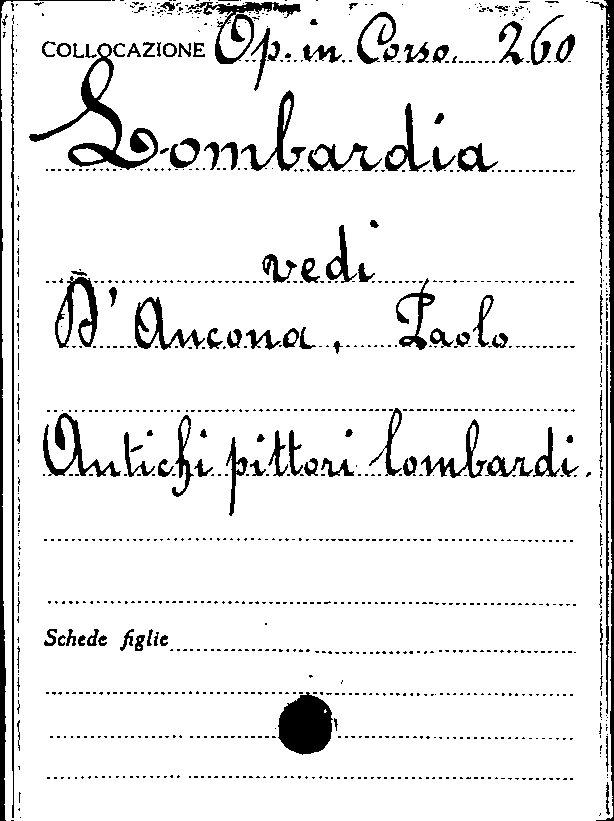 COLLOCAZIONE Op. in Corso. 260
Lombardia
vedi
D'Ancona, Paolo
Antichi pittori lombardi.
Schede figlie